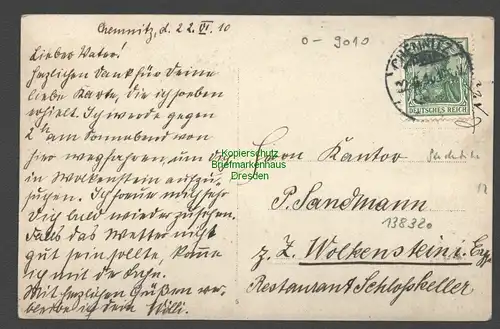 Chemnitz, d. 22. VI. 10
Lieber Vater!
Herzlichen Dank für Deine
liebe Karte, die ich soeben
erhielt. Ich werde gegen
2 am Sonnabend von
hier wegfahren, um Dich
in Wolkenstein aufzu-
suchen. Ich freue mich sehr
Dich bald wieder zu sehen.
Falls das Wetter nicht
gut sein sollte, komme
ich mit der Bahn.
Mit herzlichen Grüßen ver-
bleibe ich Dein Willi.
0-9010
CHEMNITZ
DEUTSCHES REICH
Herrn Kantor
P. Sandmann
138320
z. Z. Wolkenstein i. Erzg.
Restaurant Schloßkeller
Kopierschutz
Briefmarkenhaus
Dresden